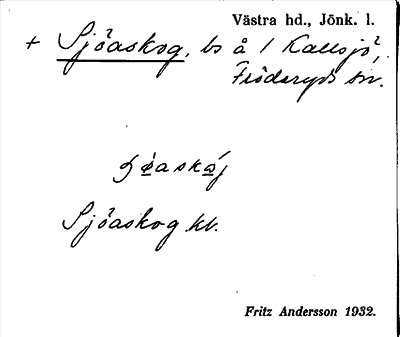 Västra hd., Jönk. l.
+ Sjöaskog, bs å 1 Kallsjö,
Fröderyds sn.
Sjöaskog kb.
Fritz Andersson 1932.